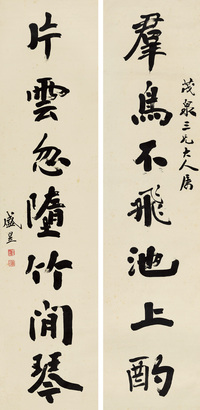 茂泉三兄大人属
羣鳥不飛池上酌
片雲忽墮竹閒琴
盛昱